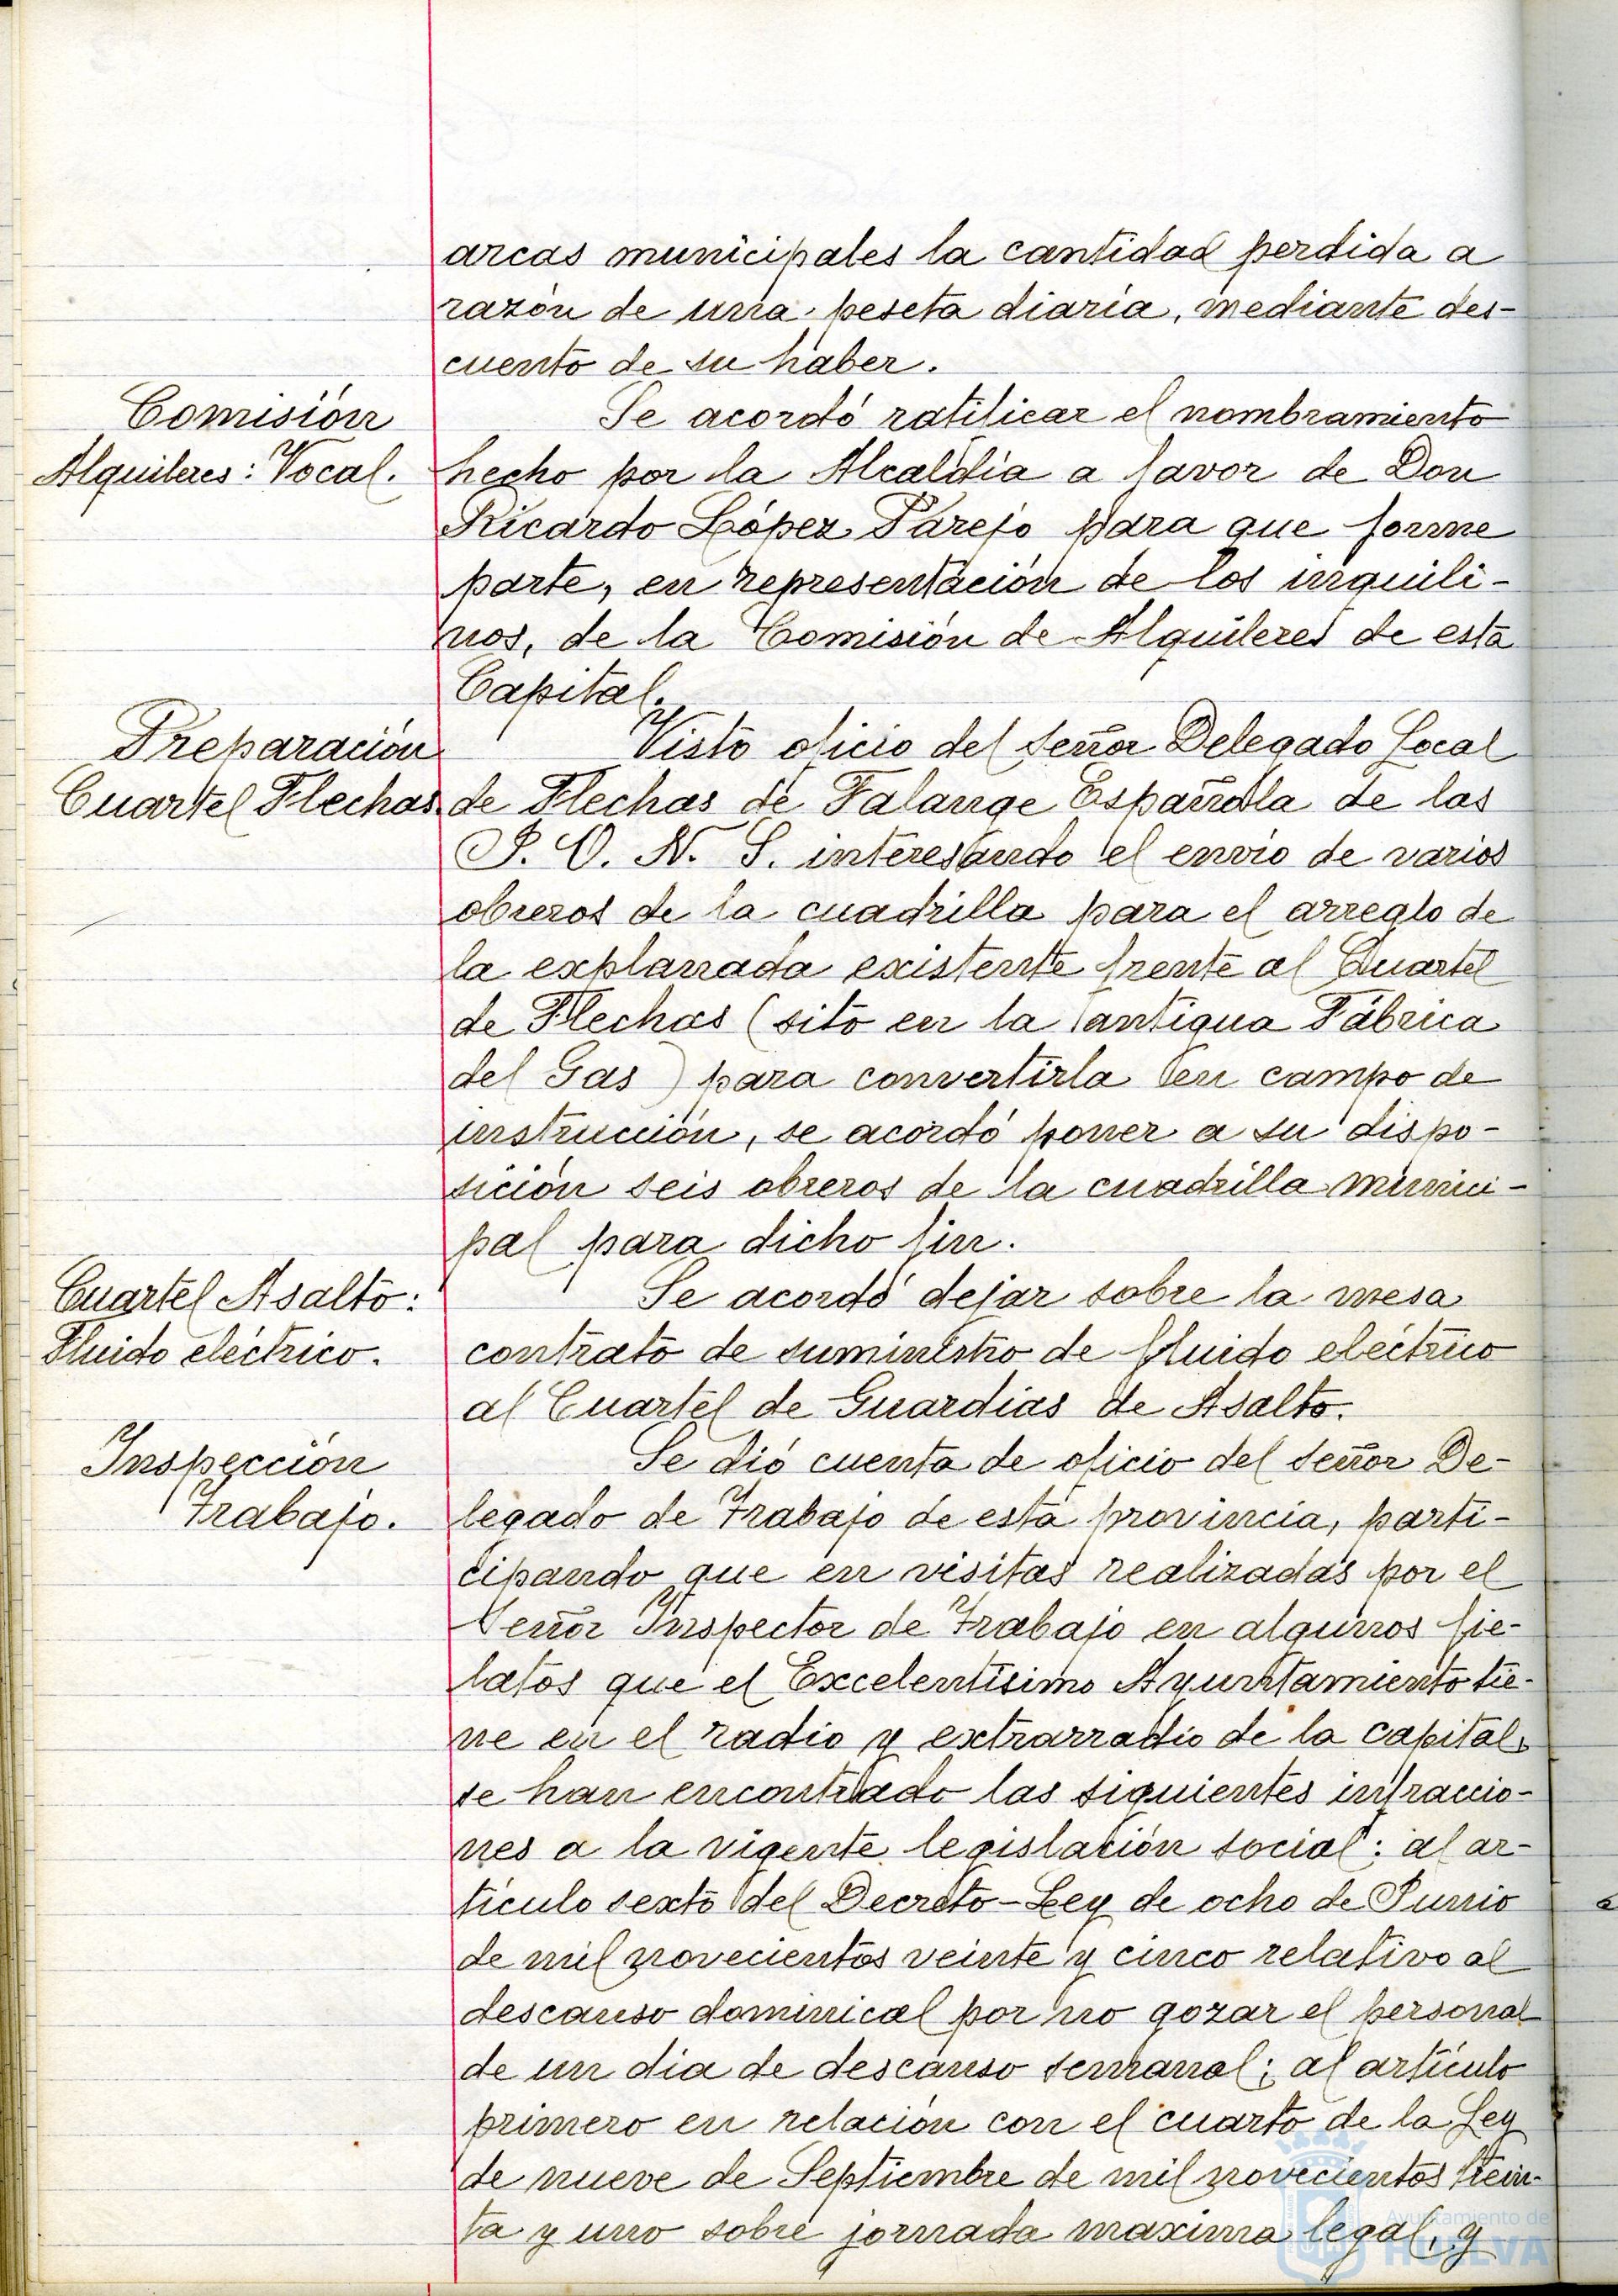 arcas municipales la cantidad perdida a
razón de una peseta diaria, mediante des-
cuento de su haber.
Comisión
Alquileres: Vocal.
Se acordó ratificar el nombramiento
hecho por la Alcaldía a favor de Don
Ricardo López Parejo para que forme
parte, en representación de los inquili-
nos, de la Comisión de Alquileres de esta
Capital.
Preparación
Cuartel Flechas
Visto oficio del Señor Delegado Local
de Flechas de Falange Española de las
J. O. N. S. interesando el envio de varios
obreros de la cuadrilla para el arreglo de
la explanada existente frente al Cuartel
de Flechas (sito en la antigua Fábrica
del Gas) para convertirla en campo de
instrucción, se acordó poner a su dispo-
sición seis obreros de la cuadrilla munici-
pal para dicho fin.
Cuartel Asalto:
Fluido eléctrico.
Se acordó dejar sobre la mesa
contrato de suministro de fluido eléctrico
al Cuartel de Guardias de Asalto.
Inspección
Trabajo.
Se dió cuenta de oficio del Señor De-
legado de Trabajo de esta provincia, parti-
cipando que en visitas realizadas por el
Señor Inspector de Trabajo en algunos fie-
latos que el Excelentísimo Ayuntamiento tie-
ne en el radio y extrarradio de la capital,
se han encontrado las siguientes infraccio-
nes a la vigente legislación social: al ar-
tículo sexto del Decreto-Ley de ocho de Junio
de mil novecientos veinte y cinco relativo al
descanso dominical por no gozar el personal
de un dia de descanso semanal; al artículo
primero en relación con el cuarto de la Ley
de nueve de Septiembre de mil novecientos trein-
ta y uno sobre jornada maxima legal, y
Ayuntamiento de
HUELVA